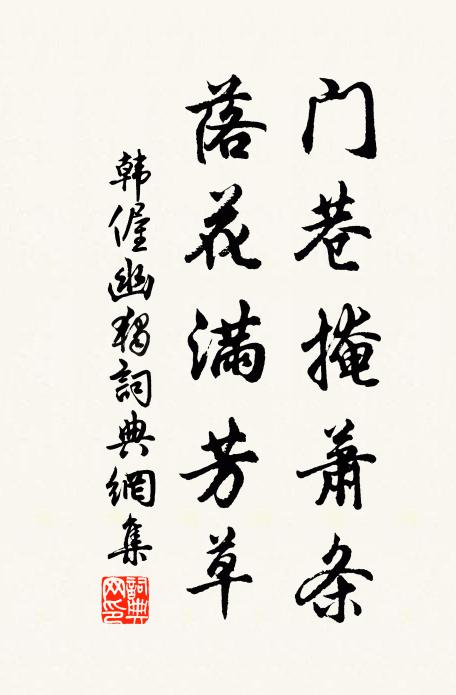 门巷掩萧条
落花满芳草
韩偓幽独詞典網集
詞典网印